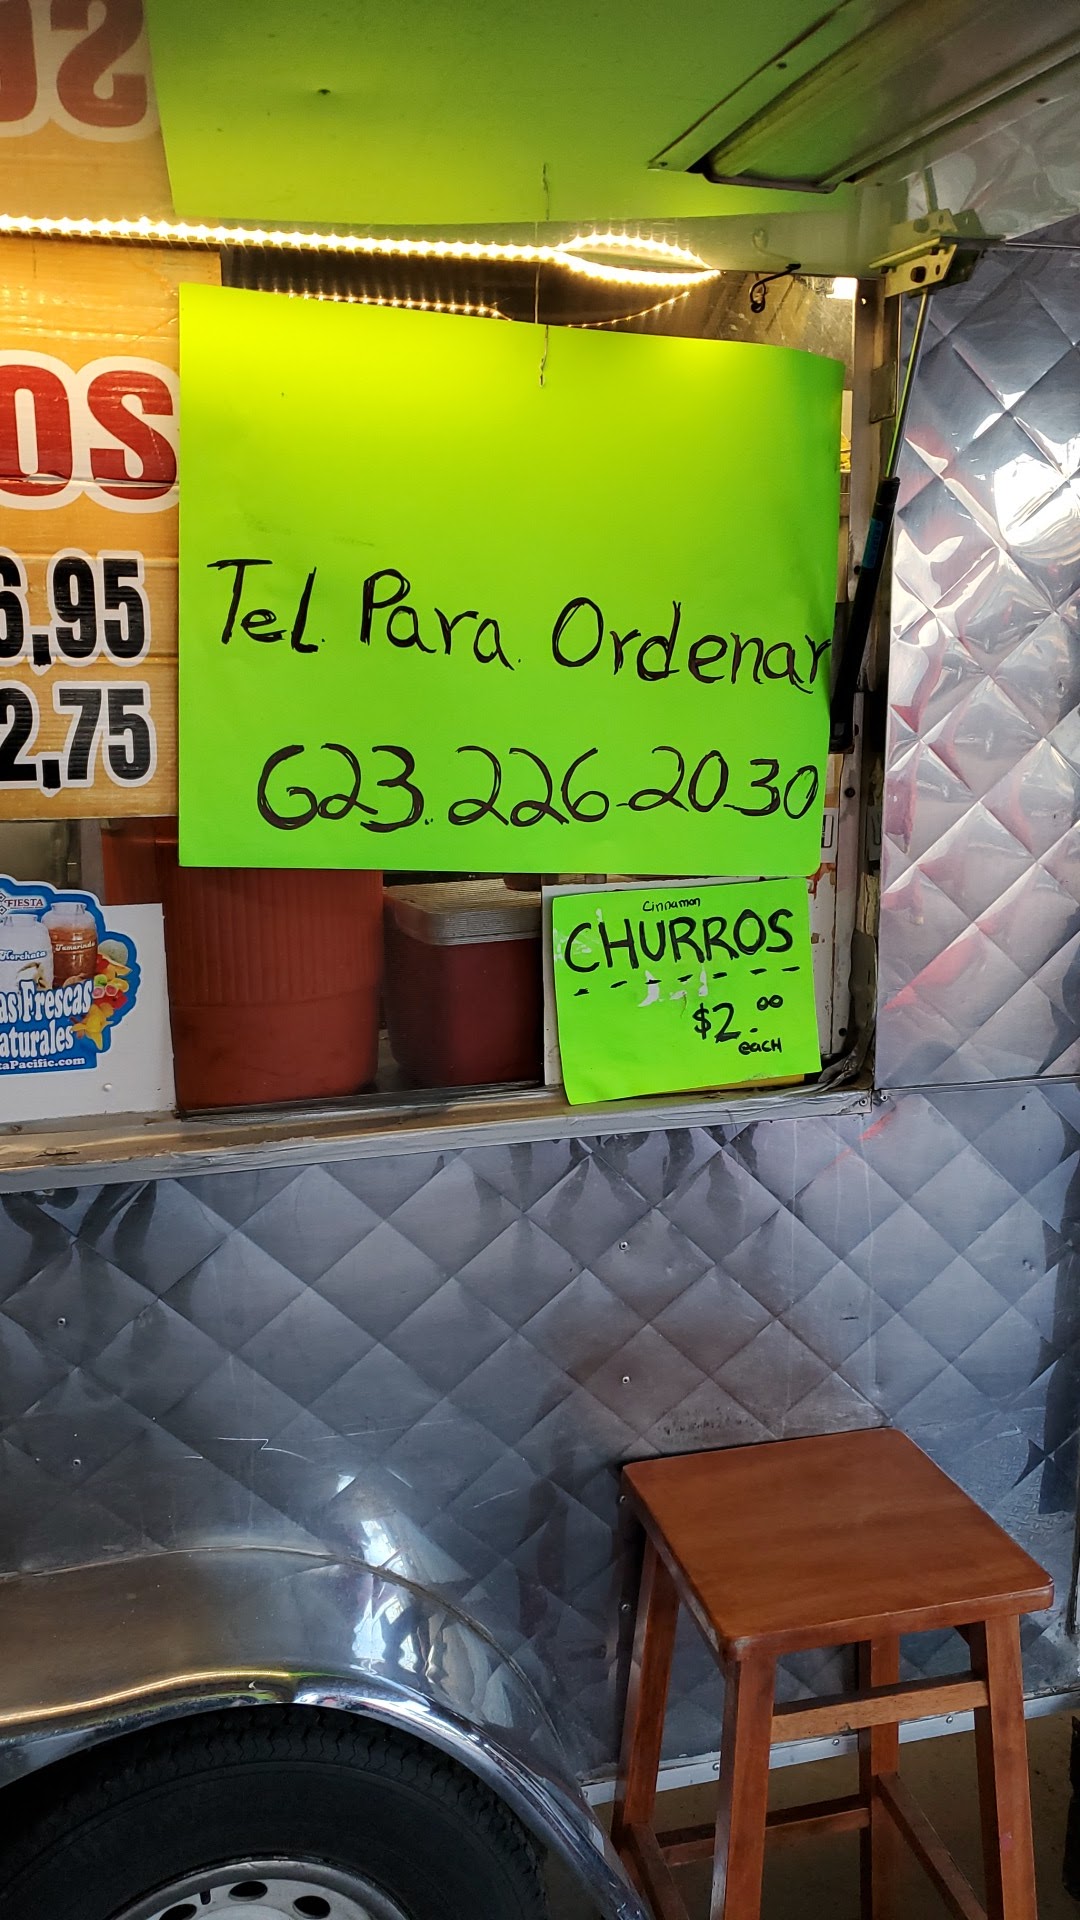 os
6,95
2,75
Tel. Para. Ordenar
623.226-2030
Cinnamon
CHURROS
$2.00
each
FIESTA
Horchata
Tamarindo
as Frescas
aturales
taPacific.com